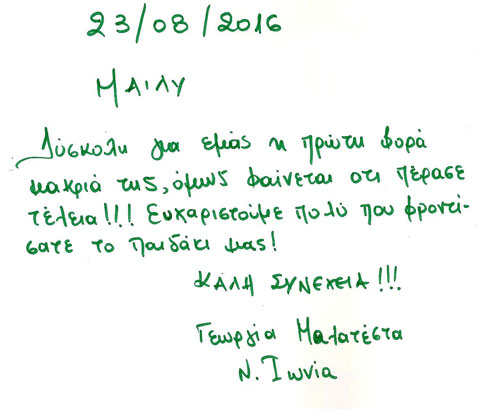 23/08/2016
ΜΑΙΛΥ
Δύσκολη για εμάς η πρώτη φορά
μακριά της, όμως φαίνεται οτι πέρασε
τέλεια!!! Ευχαριστούμε πολύ που φροντί-
σατε το παιδάκι μας!
ΚΑΛΗ ΣΥΝΕΧΕΙΑ!!!
Γεωργία Ματατέστα
Ν. Ιωνία